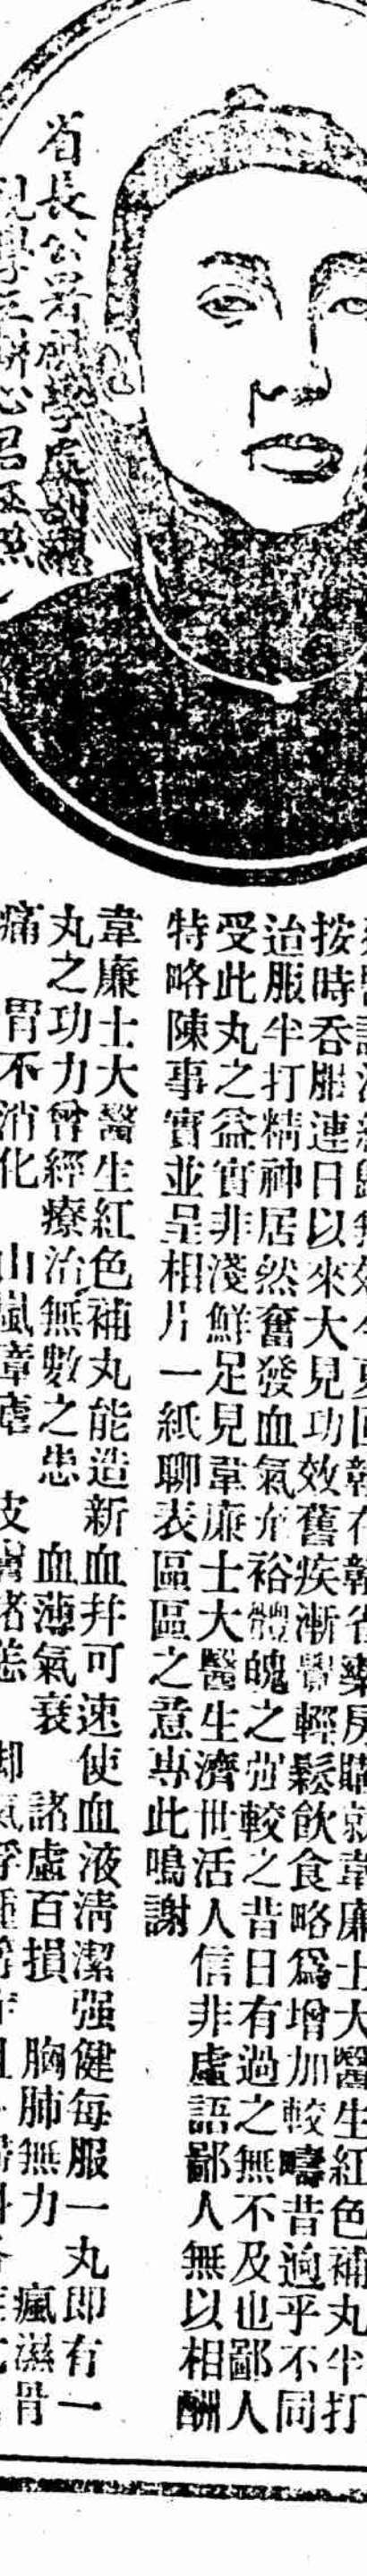 省長公署
視學
今夏回贛在贛省藥房購就韋廉士大醫生紅色補丸半打
按時吞服連日以來大見功效舊疾漸覺輕鬆飲食略爲增加較疇昔逈乎不同
迨服半打精神居然奮發血氣充裕體魄之强較之昔日有過之無不及也鄙人
受此丸之益實非淺鮮足見韋廉士大醫生濟世活人信非虛語鄙人無以相酬
特略陳事實並呈相片一紙聊表區區之意專此鳴謝
韋廉士大醫生紅色補丸能造新血幷可速使血液清潔强健每服一丸即有一
丸之功力曾經療治無數之患 血薄氣衰 諸虛百損 胸肺無力 瘋濕骨
痛 胃不消化 山嵐瘴瘧